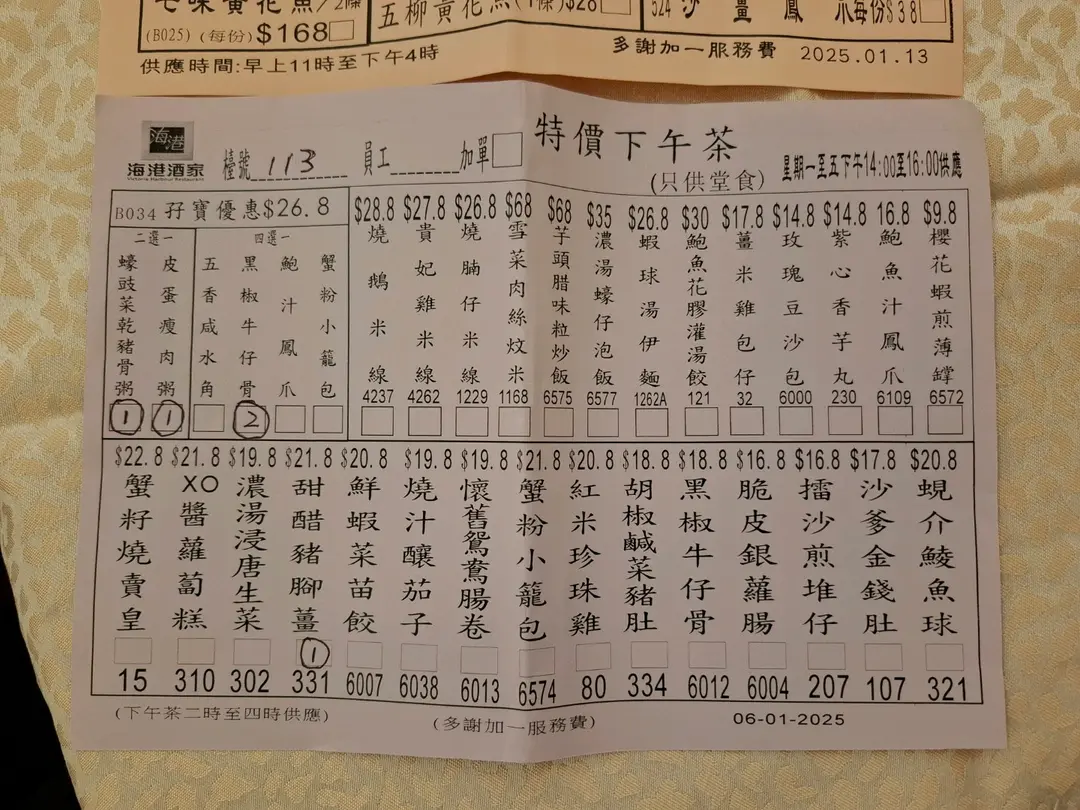 七味黃花魚/2條
(B025) (每份)$168
五柳黃花魚(1條)$28
524 沙薑鳳爪每份$38
供應時間:早上11時至下午4時
多謝加一服務費 2025.01.13
海港
海港酒家
Victoria Harbour Restaurant
檯號 113
員工
加單
特價下午茶
(只供堂食)
星期一至五下午14:00至16:00供應
B034 孖寶優惠$26.8
二選一
蠔豉菜乾豬骨粥 1
皮蛋瘦肉粥 1
四選一
五香咸水角
黑椒牛仔骨 2
鮑汁鳳爪
蟹粉小籠包
$28.8 燒鵝米線 4237
$27.8 貴妃雞米線 4262
$26.8 燒腩仔米線 1229
$68 雪菜肉絲炆米 1168
$68 芋頭腊味粒炒飯 6575
$35 濃湯蠔仔泡飯 6577
$26.8 蝦球湯伊麵 1262A
$30 鮑魚花膠灌湯餃 121
$17.8 薑米雞包仔 32
$14.8 玫瑰豆沙包 6000
$14.8 紫心香芋丸 230
16.8 鮑魚汁鳳爪 6109
$9.8 櫻花蝦煎薄罉 6572
$22.8 蟹籽燒賣皇 15
$21.8 XO醬蘿蔔糕 310
$19.8 濃湯浸唐生菜 302
$21.8 甜醋豬腳薑 1 331
$20.8 鮮蝦菜苗餃 6007
$19.8 燒汁釀茄子 6038
$19.8 懷舊鴛鴦腸卷 6013
$21.8 蟹粉小籠包 6574
$20.8 紅米珍珠雞 80
$18.8 胡椒鹹菜豬肚 334
$18.8 黑椒牛仔骨 6012
$16.8 脆皮銀蘿腸 6004
$16.8 擂沙煎堆仔 207
$17.8 沙爹金錢肚 107
$20.8 蜆介鯪魚球 321
(下午茶二時至四時供應)
(多謝加一服務費)
06-01-2025